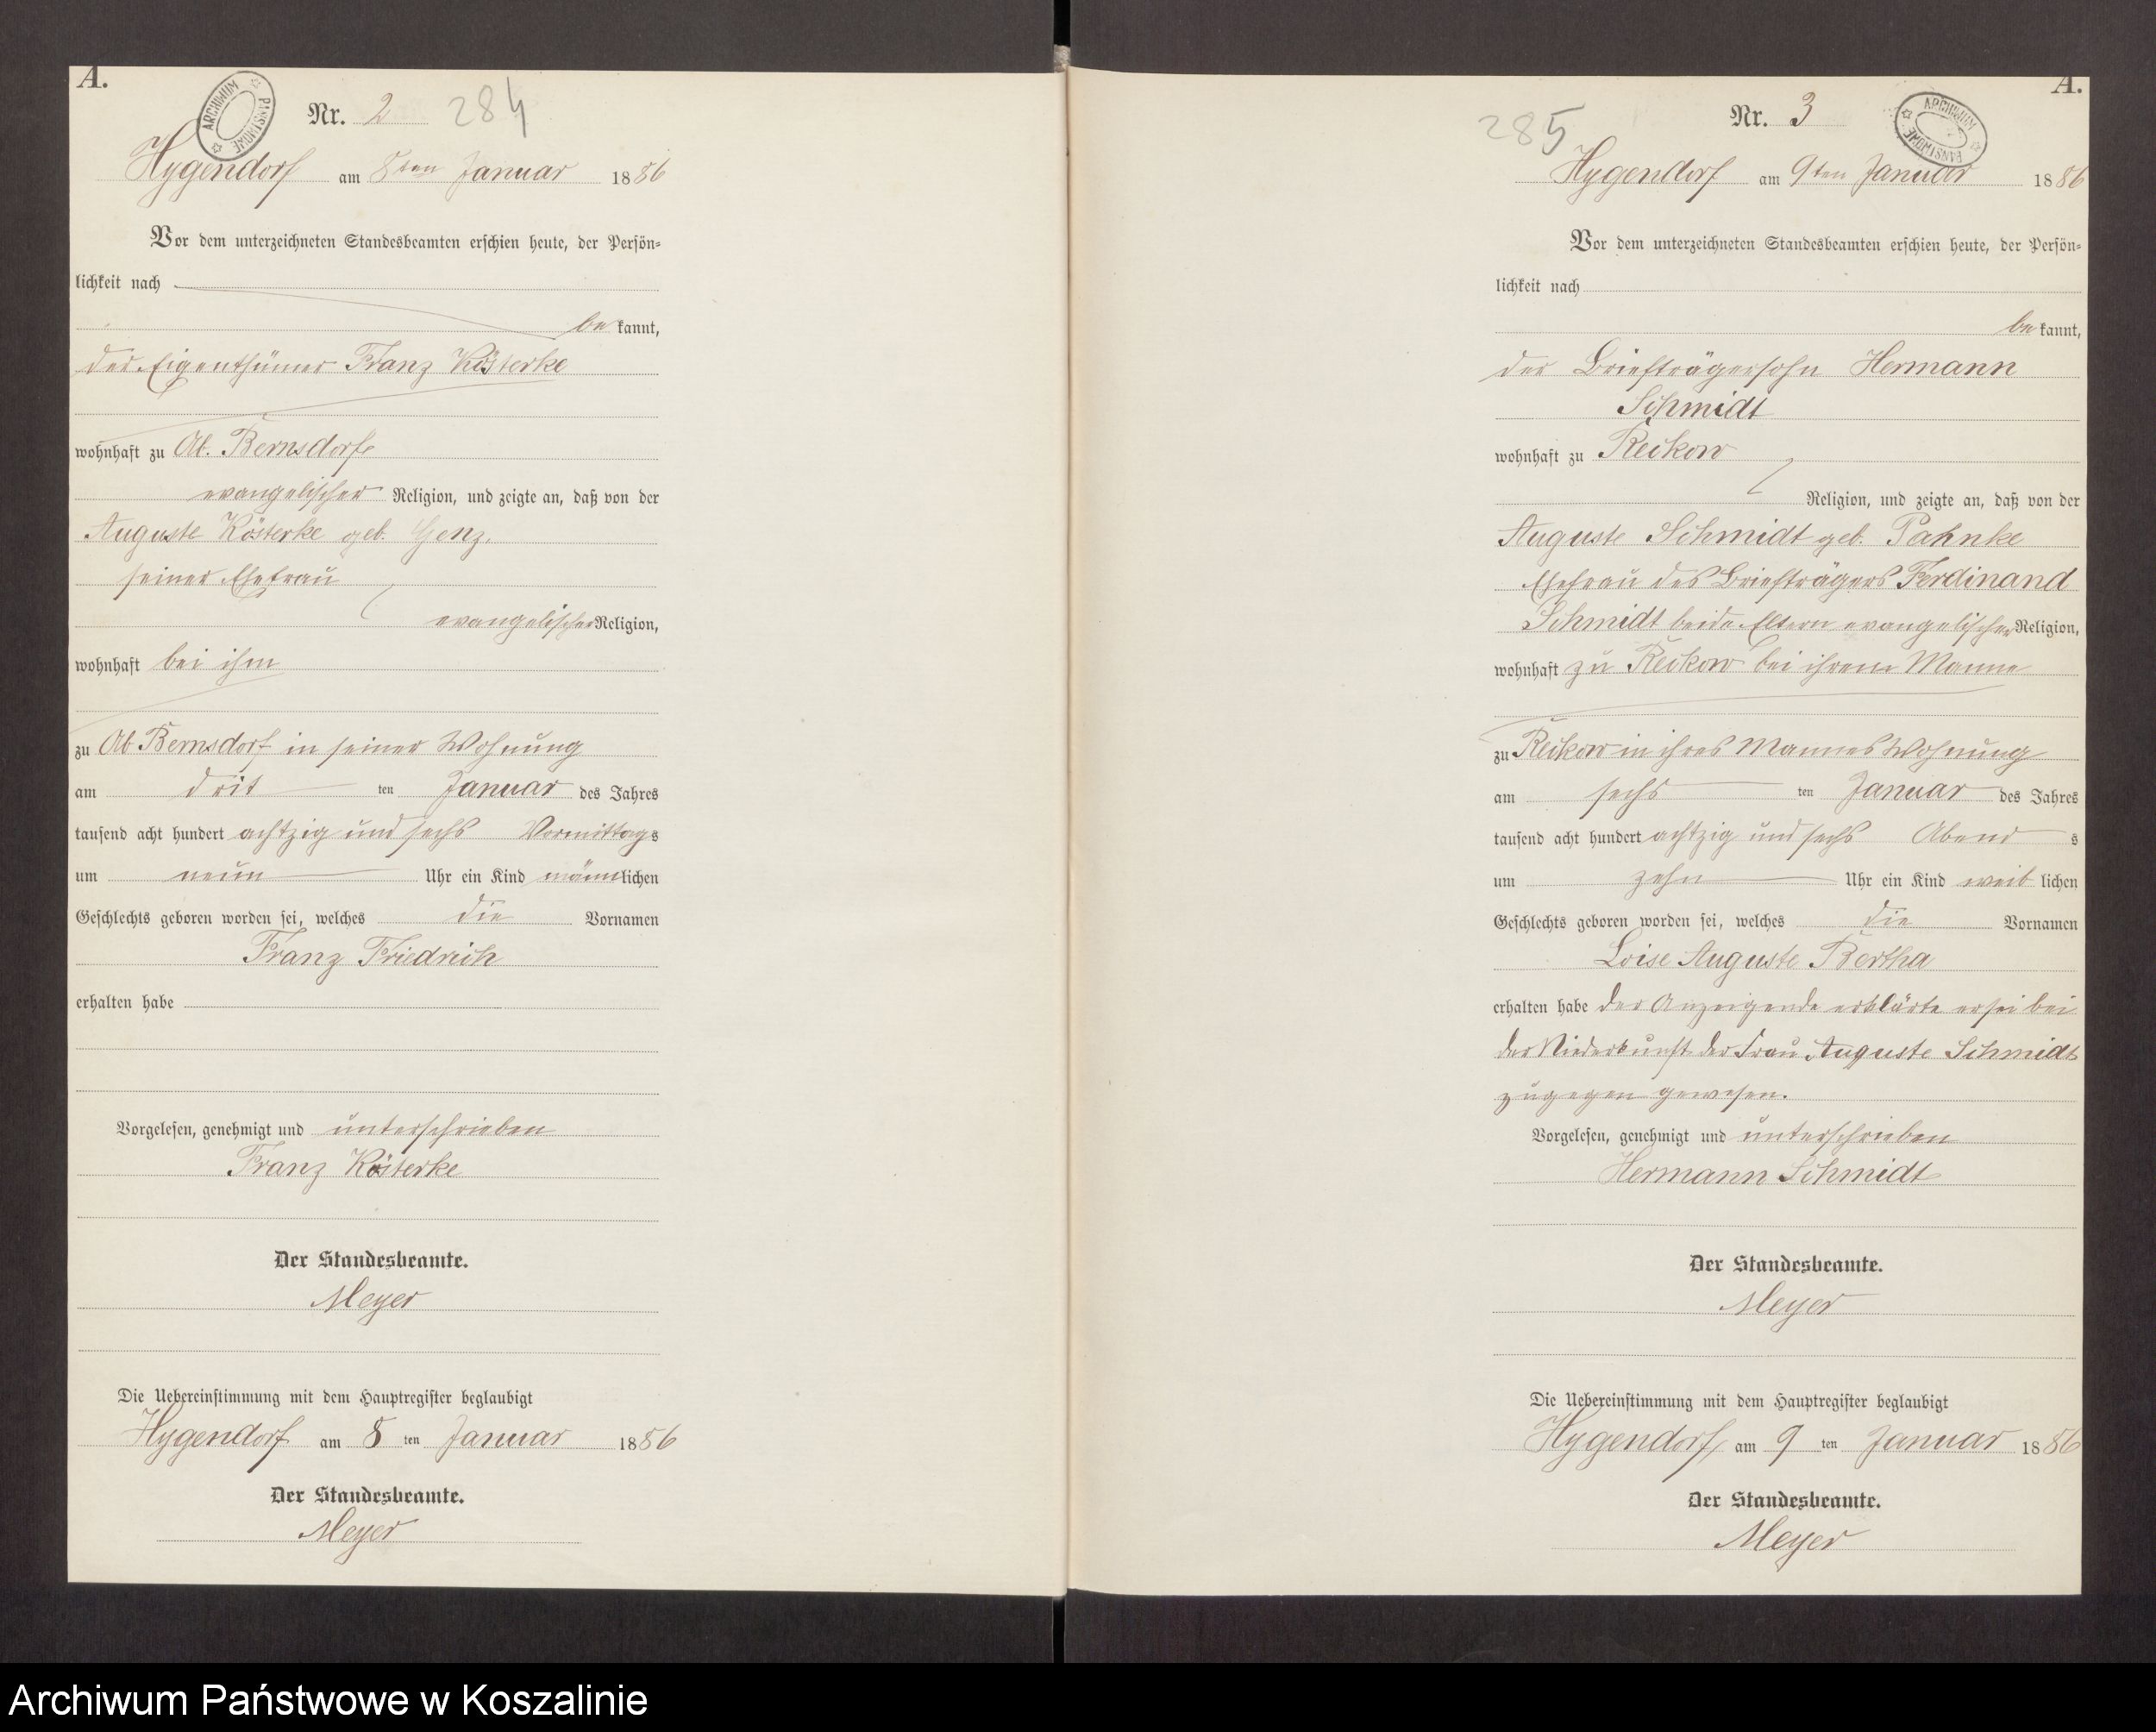 A.
ARCHIWUM PAŃSTWOWE
Nr. 2 284
Hygendorf am 8ten Januar 1886
Vor dem unterzeichneten Standesbeamten erschien heute, der Persön=
lichkeit nach
be kannt,
der Eigenthümer Franz Kösterke
wohnhaft zu Ab. Bernsdorf
evangelischer Religion, und zeigte an, daß von der
Auguste Kösterke geb. Genz,
seiner Ehefrau
evangelischer Religion,
wohnhaft bei ihm
zu Ab Bernsdorf in seiner Wohnung
am drit ten Januar des Jahres
tausend acht hundert achtzig und sechs Vormittags
um neun Uhr ein Kind männlichen
Geschlechts geboren worden sei, welches die Vornamen
Franz Friedrich
erhalten habe
Vorgelesen, genehmigt und unterschrieben
Franz Kösterke
Der Standesbeamte.
Meyer
Die Uebereinstimmung mit dem Hauptregister beglaubigt
Hygendorf am 8 ten Januar 1886
Der Standesbeamte.
Meyer
A.
ARCHIWUM PAŃSTWOWE
285 Nr. 3
Hygendorf am 9ten Januar 1886
Vor dem unterzeichneten Standesbeamten erschien heute, der Persön=
lichkeit nach
be kannt,
der Briefträgersohn Hermann
Schmidt
wohnhaft zu Reckow
Religion, und zeigte an, daß von der
Auguste Schmidt geb. Pahnke
Ehefrau des Briefträgers Ferdinand
Schmidt beide Eltern evangelischer Religion,
wohnhaft zu Reckow bei ihrem Manne
zu Reckow in ihres Mannes Wohnung
am sechs ten Januar des Jahres
tausend acht hundert achtzig und sechs Abend s
um zehn Uhr ein Kind weib lichen
Geschlechts geboren worden sei, welches die Vornamen
Loise Auguste Bertha
erhalten habe der Anzeigende erklärte er sei bei
der Niederkunft der Frau Auguste Schmidt
zugegen gewesen.
Vorgelesen, genehmigt und unterschrieben
Hermann Schmidt
Der Standesbeamte.
Meyer
Die Uebereinstimmung mit dem Hauptregister beglaubigt
Hygendorf, am 9 ten Januar 1886
Der Standesbeamte.
Meyer
Archiwum Państwowe w Koszalinie